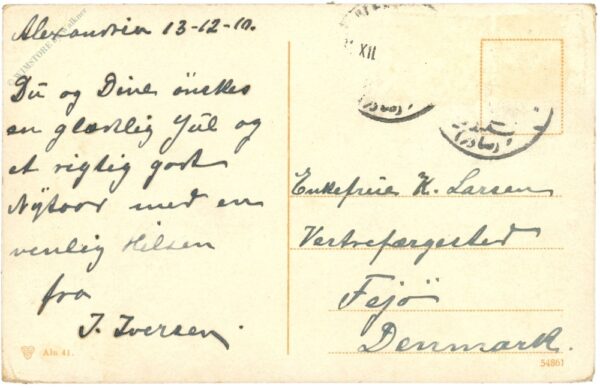 Alexandria 13-12-10.
Du og Dine önskes
en glædelig Jul og
et rigtig godt
Nytaar med en
venlig Hilsen
fra
J. Iversen.
XII
Enkefrue K. Larsen
Vestrefærgested
Fejö
Denmark.
Aln 41.
54861